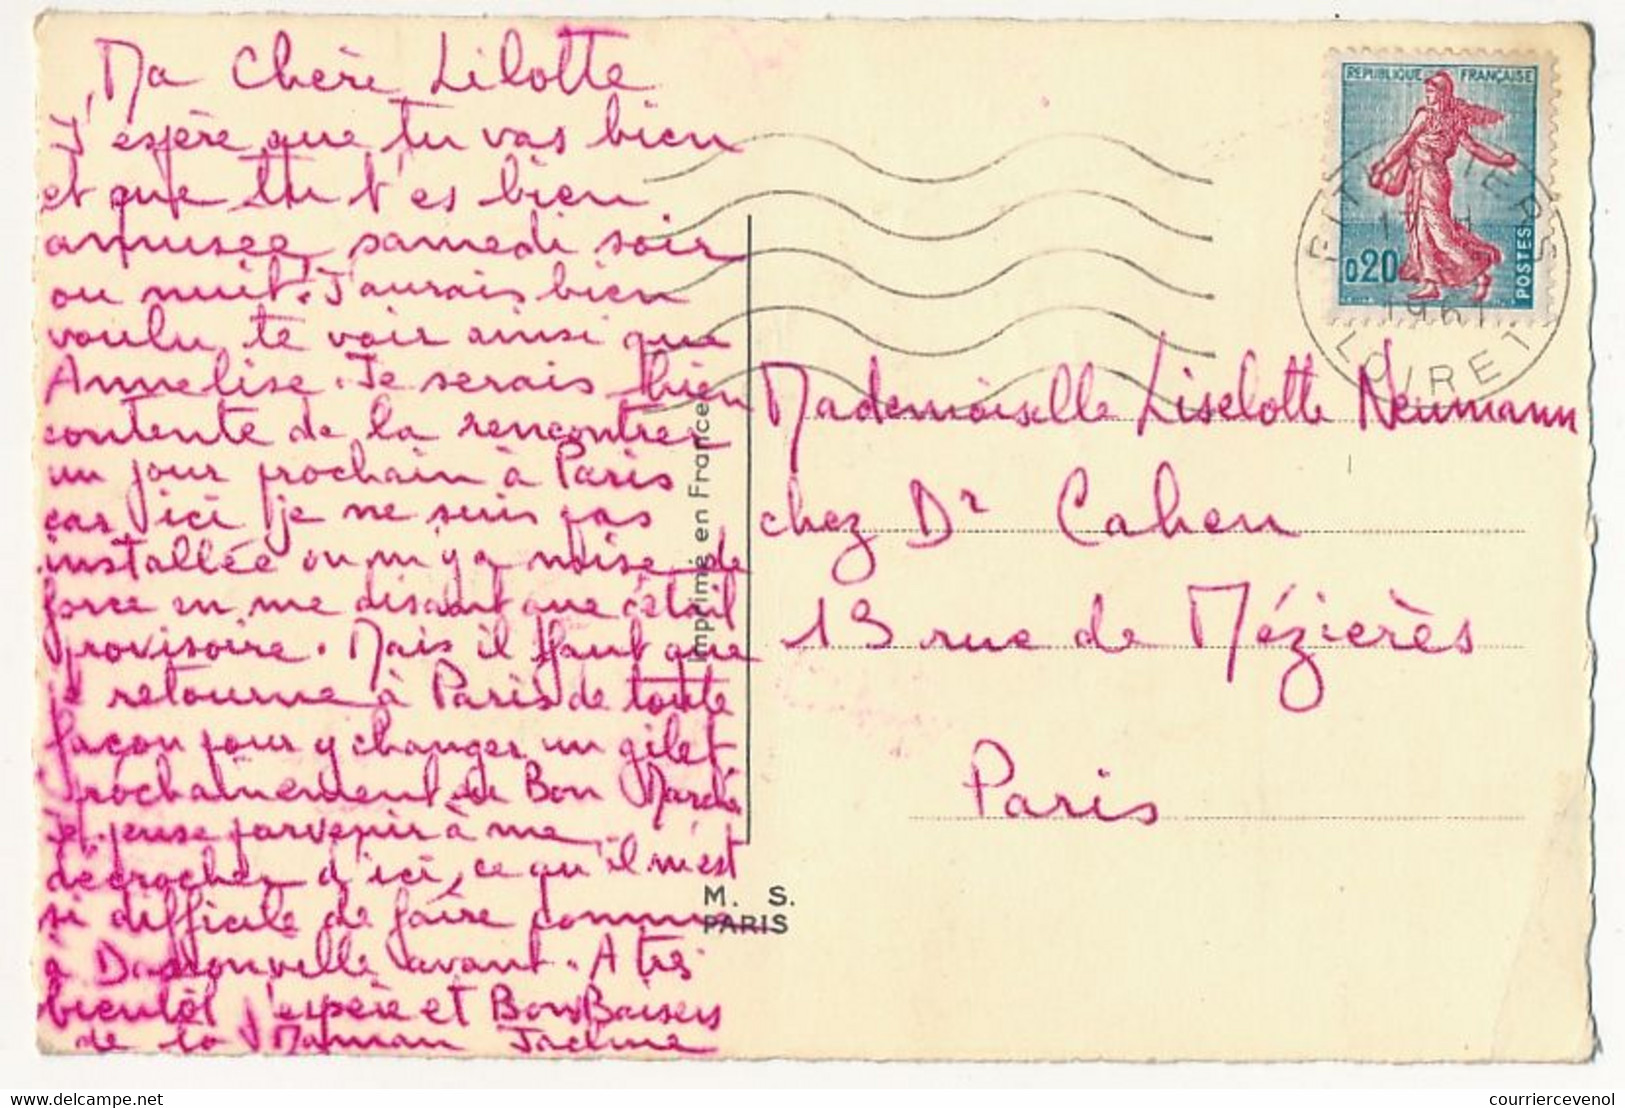 Ma Chère Lilotte
J'espère que tu vas bien
et que tu t'es bien
amusée samedi soir
ou nuit! J'aurais bien
voulu te voir ainsi que
Annelise. Je serais bien
contente de la rencontrer
un jour prochain à Paris
car ici je ne suis pas
installée on m'y a mise de
force en me disant que c'était
provisoire. Mais il faut que
je retourne à Paris de toute
façon pour y changer un gilet
prochainement au Bon Marché
et pense parvenir à me
décrocher d'ici, ce qu'il m'est
si difficile de faire comme
a avant. A très
bientôt j'espère et Bons Baisers
de ta Maman
Imprimé en France
M. S.
PARIS
REPUBLIQUE FRANÇAISE
0.20
POSTES
PITHIVIERS
1961
LOIRET
Mademoiselle Liselotte Neumann
chez Dr Cahen
13 rue de Mézières
Paris
delcampe.net
courriercevenol